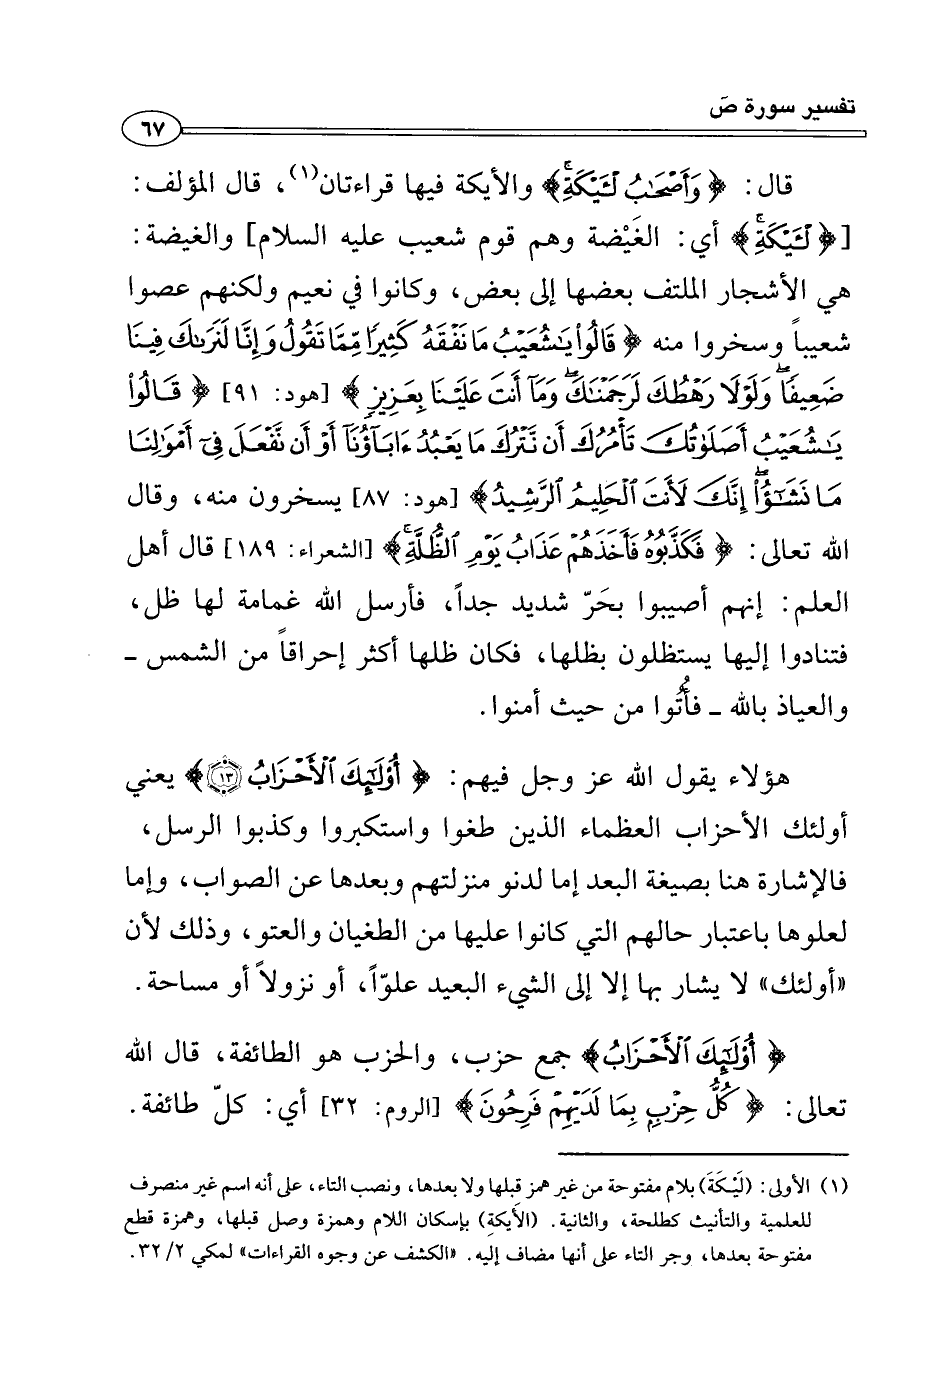 تفسير سورة صَ
٦٧
قال: ﴿ وَأَصْحَٰبُ لْـَٔيْكَةِ ۚ﴾ والأيكة فيها قراءتان(١)، قال المؤلف:
[﴿ لْـَٔيْكَةِ ۚ﴾ أي: الغَيْضة وهم قوم شعيب عليه السلام] والغيضة:
هي الأشجار الملتف بعضها إلى بعض، وكانوا في نعيم ولكنهم عصوا
شعيباً وسخروا منه ﴿ قَالُوا۟ يَٰشُعَيْبُ مَا نَفْقَهُ كَثِيرًا مِّمَّا تَقُولُ وَإِنَّا لَنَرَىٰكَ فِينَا
ضَعِيفًا ۖ وَلَوْلَا رَهْطُكَ لَرَجَمْنَٰكَ ۖ وَمَآ أَنتَ عَلَيْنَا بِعَزِيزٍ ﴾ [هود: ٩١] ﴿ قَالُوا۟
يَٰشُعَيْبُ أَصَلَوٰتُكَ تَأْمُرُكَ أَن نَّتْرُكَ مَا يَعْبُدُ ءَابَآؤُنَآ أَوْ أَن نَّفْعَلَ فِىٓ أَمْوَٰلِنَا
مَا نَشَٰٓؤُا۟ ۖ إِنَّكَ لَأَنتَ ٱلْحَلِيمُ ٱلرَّشِيدُ ﴾ [هود: ٨٧] يسخرون منه، وقال
الله تعالى: ﴿ فَكَذَّبُوهُ فَأَخَذَهُمْ عَذَابُ يَوْمِ ٱلظُّلَّةِ ۚ﴾ [الشعراء: ١٨٩] قال أهل
العلم: إنهم أصيبوا بحَرّ شديد جداً، فأرسل الله غمامة لها ظل،
فتنادوا إليها يستظلون بظلها، فكان ظلها أكثر إحراقاً من الشمس ـ
والعياذ بالله ـ فأُتُوا من حيث أمنوا.
هؤلاء يقول الله عز وجل فيهم: ﴿ أُو۟لَٰٓئِكَ ٱلْأَحْزَابُ ۝١٣ ﴾ يعني
أولئك الأحزاب العظماء الذين طغوا واستكبروا وكذبوا الرسل،
فالإشارة هنا بصيغة البعد إما لدنو منزلتهم وبعدها عن الصواب، وإما
لعلوها باعتبار حالهم التي كانوا عليها من الطغيان والعتو، وذلك لأن
«أولئك» لا يشار بها إلا إلى الشيء البعيد علوّاً، أو نزولاً أو مساحة.
﴿ أُو۟لَٰٓئِكَ ٱلْأَحْزَابُ ﴾ جمع حزب، والحزب هو الطائفة، قال الله
تعالى: ﴿ كُلُّ حِزْبٍۭ بِمَا لَدَيْهِمْ فَرِحُونَ ﴾ [الروم: ٣٢] أي: كلّ طائفة.
(١) الأولى: (لَيْكَةَ) بلام مفتوحة من غير همز قبلها ولا بعدها، ونصب التاء، على أنه اسم غير منصرف
للعلمية والتأنيث كطلحة، والثانية. (الأيكةِ) بإسكان اللام وهمزة وصل قبلها، وهمزة قطع
مفتوحة بعدها، وجر التاء على أنها مضاف إليه. «الكشف عن وجوه القراءات» لمكي ٣٢/٢.